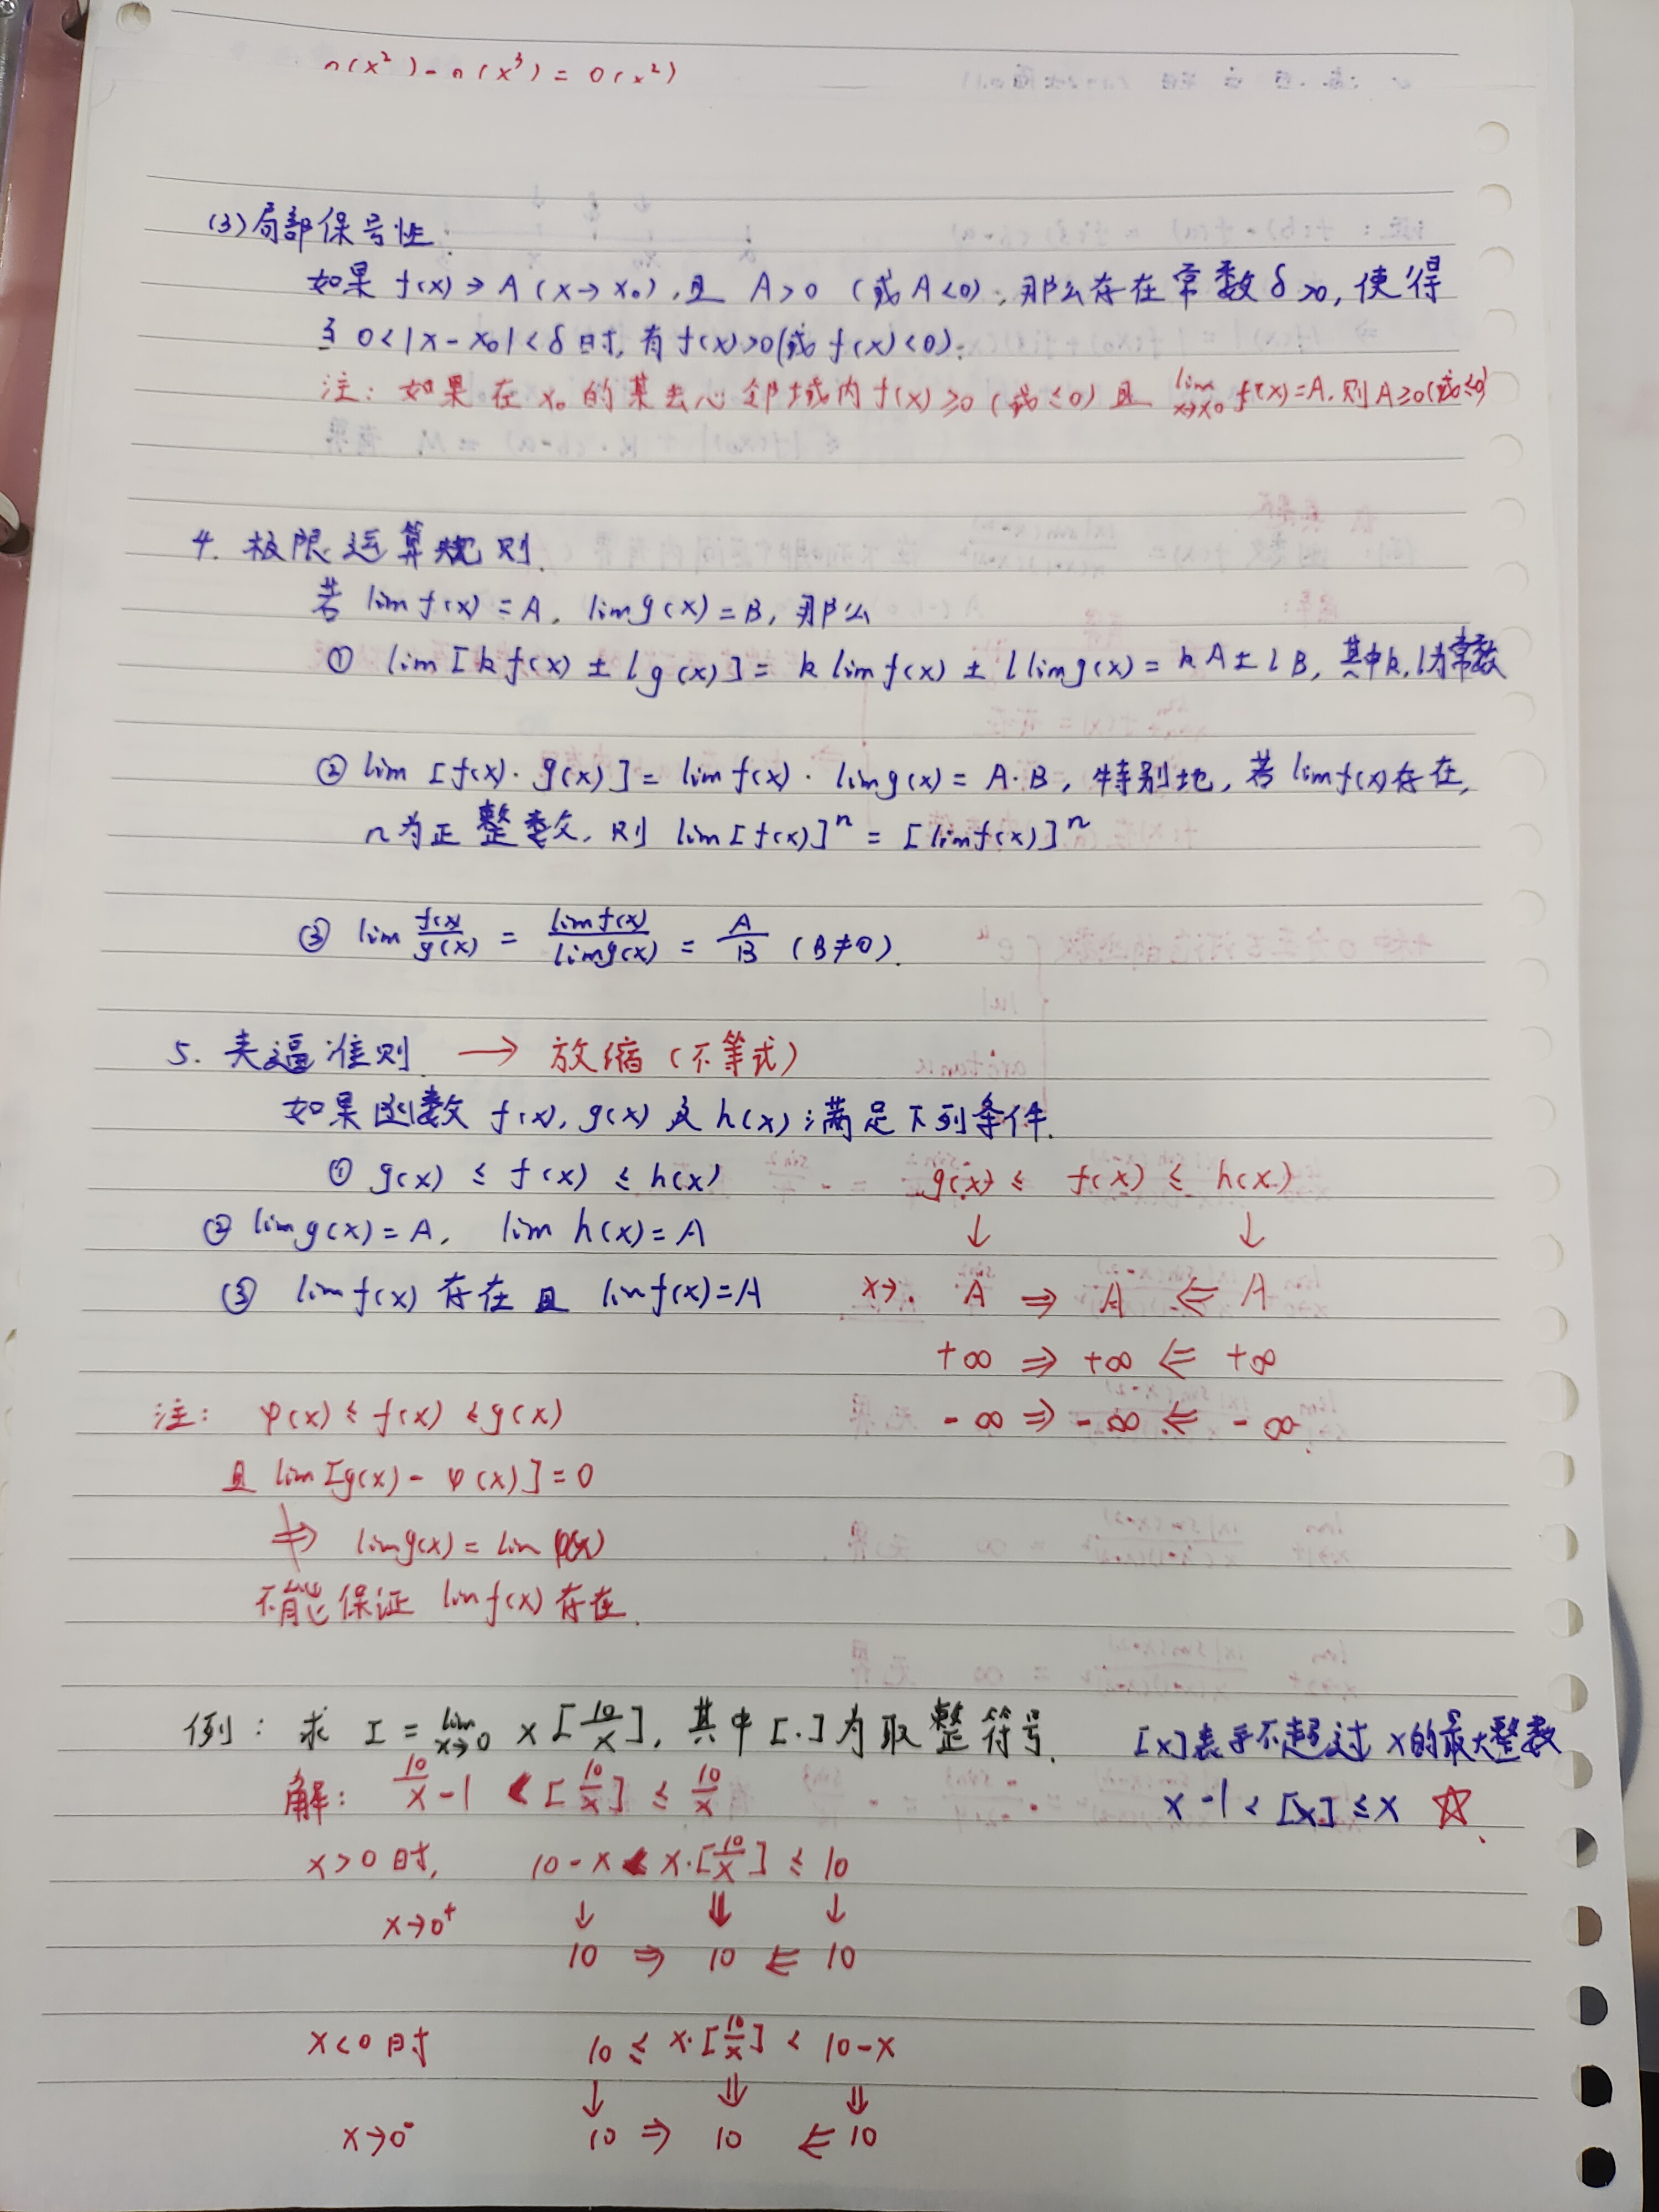 o(x²) - o(x³) = o(x²)
(3) 局部保号性
如果 f(x) → A (x→x₀), 且 A>0 (或A<0), 那么存在常数δ>0, 使得
当 0<|x-x₀|<δ时, 有f(x)>0(或f(x)<0).
注: 如果在x₀的某去心邻域内f(x)≥0(或≤0)且 lim x→x₀ f(x)=A, 则A≥0(或≤0)
4. 极限运算规则.
若 lim f(x) = A, lim g(x) = B, 那么
① lim [k f(x) ± l g(x)] = k lim f(x) ± l lim g(x) = kA ± lB, 其中k, l为常数
② lim [f(x)·g(x)] = lim f(x) · lim g(x) = A·B, 特别地, 若 lim f(x)存在,
n为正整数, 则 lim [f(x)]ⁿ = [lim f(x)]ⁿ
③ lim f(x)/g(x) = lim f(x)/lim g(x) = A/B (B≠0).
5. 夹逼准则 → 放缩(不等式)
如果函数 f(x), g(x) 及 h(x) 满足下列条件.
① g(x) ≤ f(x) ≤ h(x) g(x) ≤ f(x) ≤ h(x)
② lim g(x) = A, lim h(x) = A ↓ ↓
③ lim f(x) 存在且 lim f(x) = A x→. A ⇒ A ⇐ A
+∞ ⇒ +∞ ⇐ +∞
注: φ(x) ≤ f(x) ≤ g(x) -∞ ⇒ -∞ ⇐ -∞.
且 lim [g(x) - φ(x)] = 0
⇏ lim g(x) = lim φ(x)
不能保证 lim f(x) 存在.
例: 求 I = lim x→0 x[10/x], 其中[·]为取整符号. [x]表示不超过x的最大整数
解: 10/x - 1 < [10/x] ≤ 10/x x-1 < [x] ≤ x ☆.
x>0时, 10-x < x·[10/x] ≤ 10
x→0⁺ ↓ ⇓ ↓
10 ⇒ 10 ⇐ 10
x<0时 10 ≤ x·[10/x] < 10-x
↓ ⇓ ⇓
x→0⁻ 10 ⇒ 10 ⇐ 10